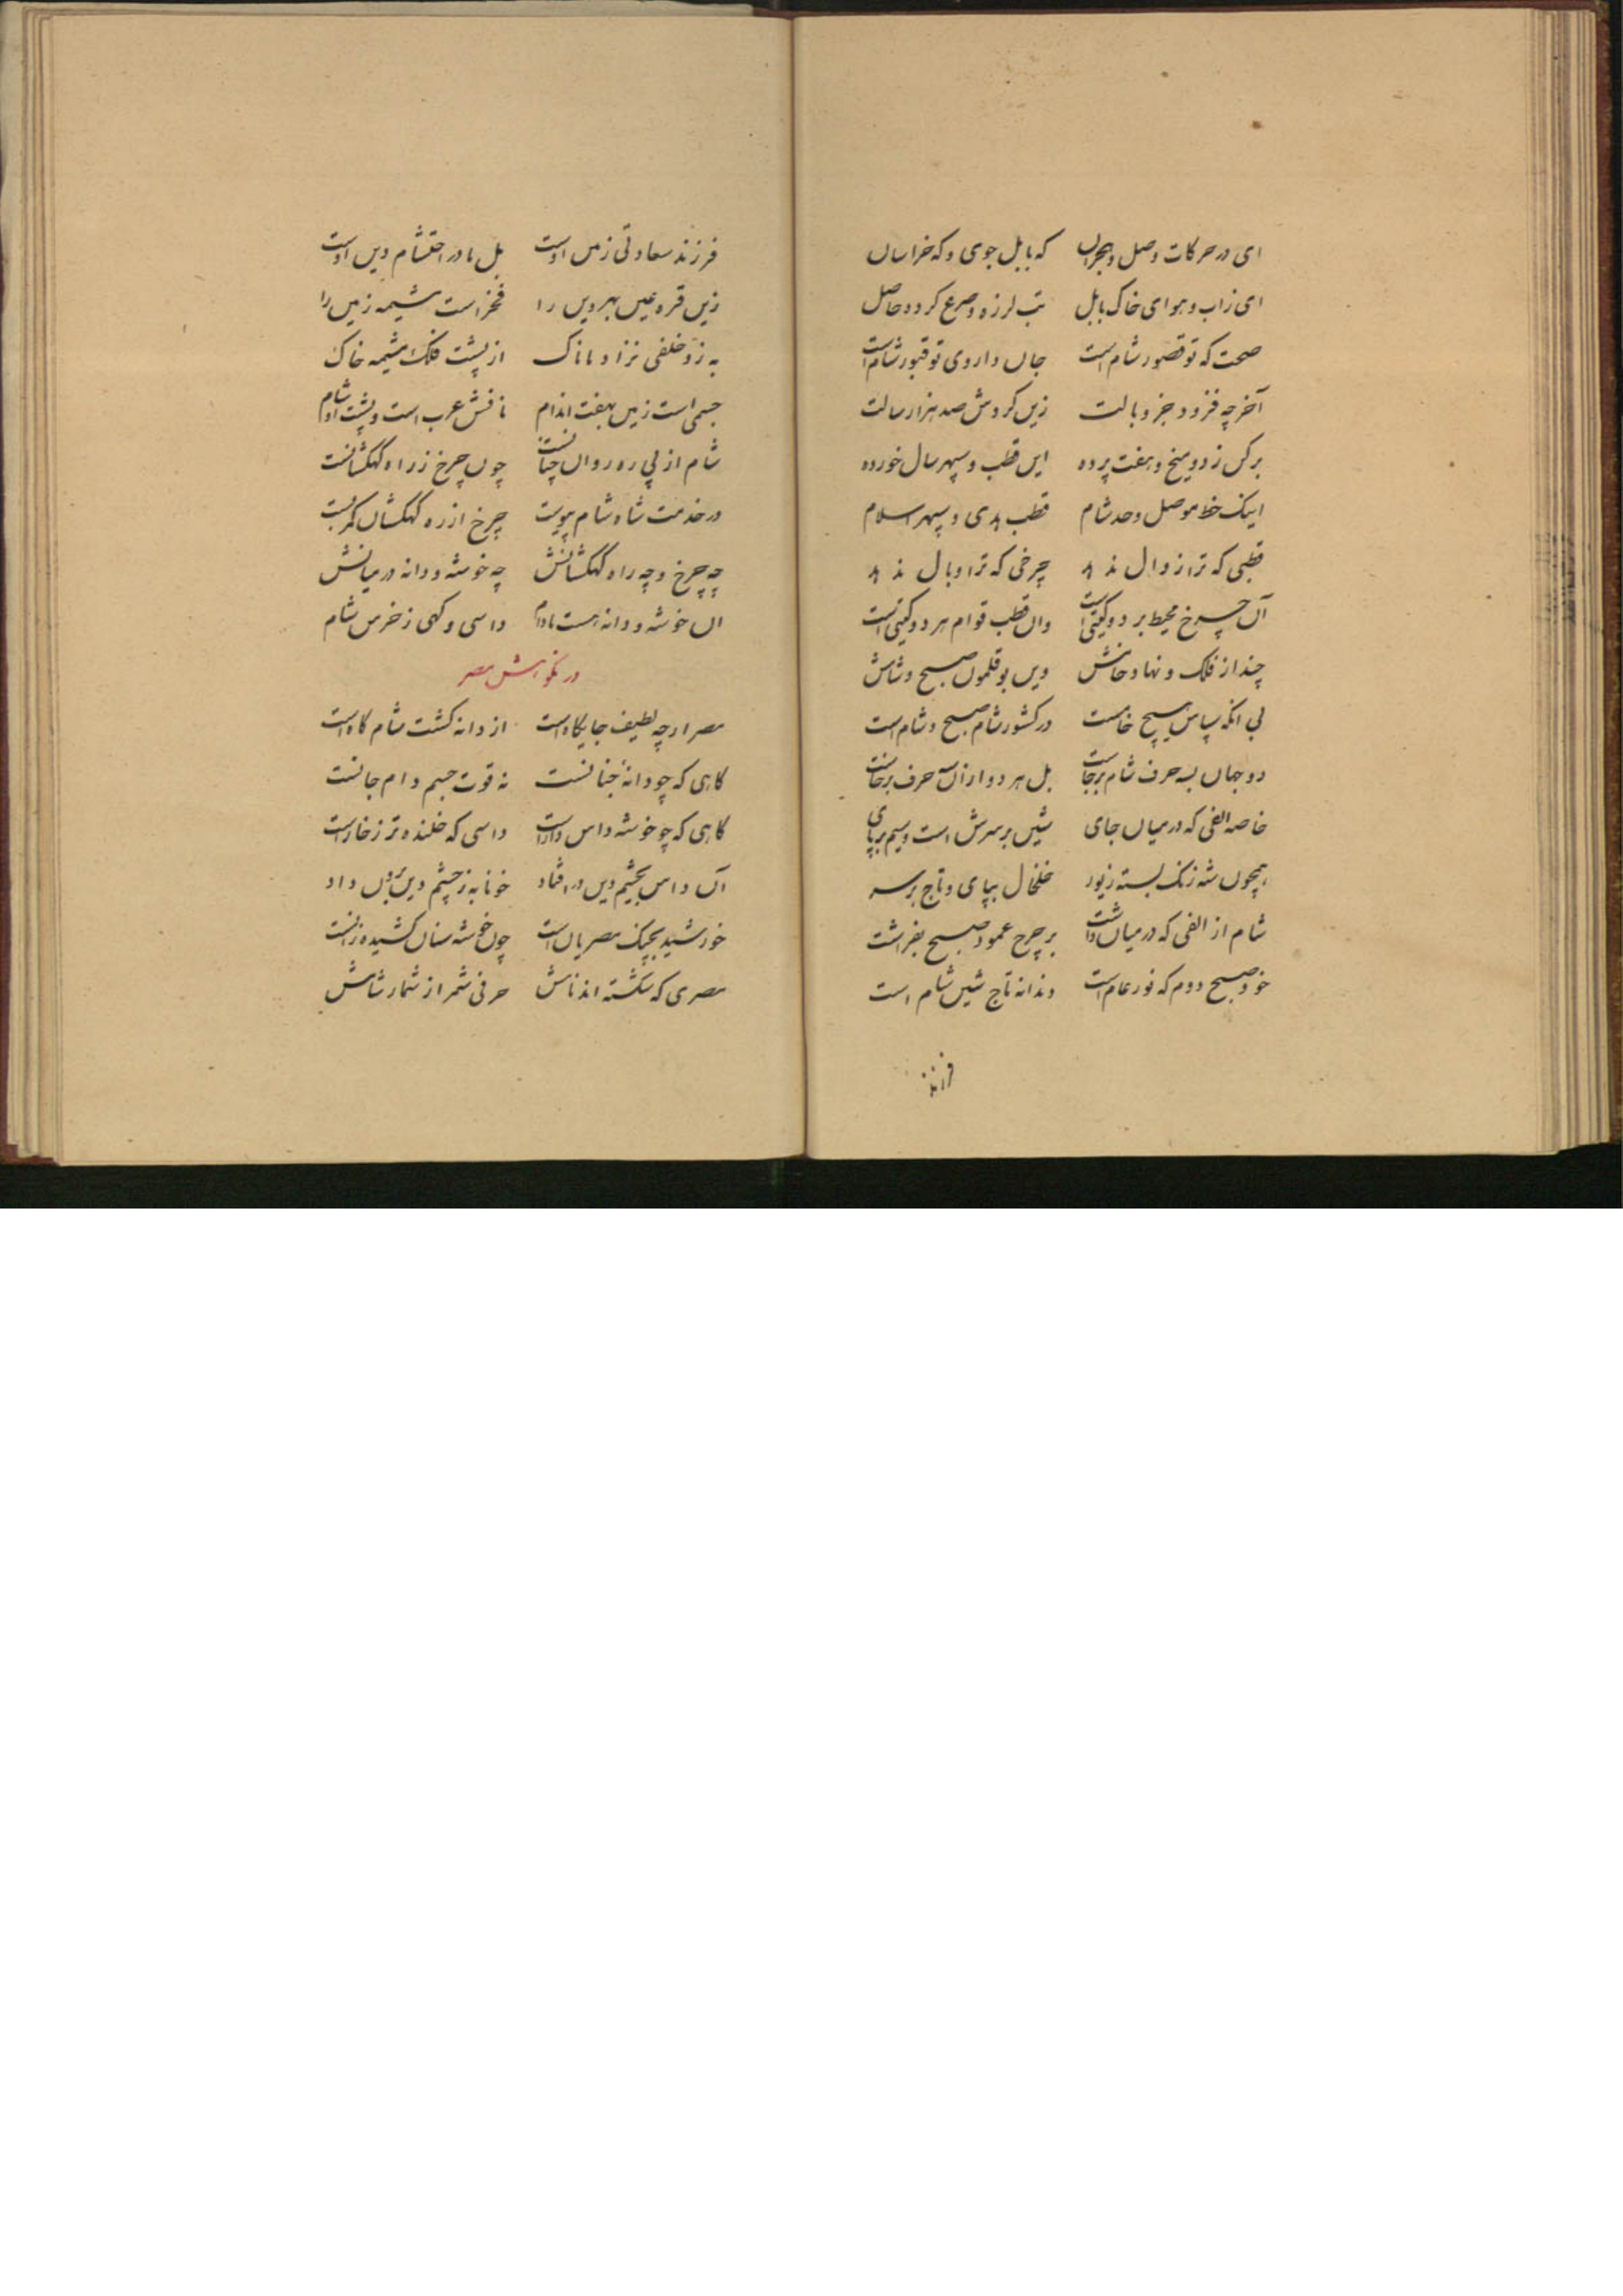 ای در حرکات وصل و هجران که بابل جوی و که خراسان
ای زاب و هوای خاک بابل تب لرزه و صرع کرده حاصل
صحت که تو قصور شام است جان داروی تو قبور شام است
آخر چه فزود جز وبالت زین گردش صد هزار سالت
برکن ز دو میخ و هفت پرده این قطب و سپهر سال خورده
اینک خط موصل و حد شام قطب هدی و سپهر اسلام
قطبی که ترا زوال ندهد چرخی که ترا وبال ندهد
آن چرخ محیط بر دو گیتی است وان قطب قوام هر دو گیتی است
چند از فلک و نهاد وین بوقلمون صبح و شامش
بی انکه سپاس هیچ خامست در کشور شام صبح و شام است
دو جهان بسه حرف شام برجاست بل هر دو از آن سه حرف برخاست
خاصه الفی که در میان جای شین بر سرش است و میم بر پای
همچون شه زنگ بسته زیور خلخال بپای و تاج بر سر
شام از الفی که در میان داشت بر چرخ عمود صبح بفراشت
خود صبح دوم که نور عام است دندانه تاج شین شام است
فرزند
فرزند سعادتی زمن اوست بل مادر احتشام دین اوست
زین قره عین بهر دین را فخر است مشیمه زمین را
به زو خلفی نزاد ماناک از پشت فلک مشیمه خاک
جسمی است زمین بهفت اندام نافش عرب است و پشت او شام
شام از پی ره روان چنانست چون چرخ ز راه کهکشانست
در خدمت شاه شام پیوست چرخ از ره کهکشان کمر بست
چه چرخ و چه راه کهکشانش چه خوشه و دانه در میانش
ان خوشه و دانه هست مادام داسی و کهی ز خرمن شام
در نکوهش مصر
مصر ارچه لطیف جایکاه است از دانه کشت شام کاه است
کاهی که چو دانهٔ جنانست نه قوت جسم و ام جانست
کاهی که چو خوشه داس داراست داسی که خلنده تر ز خار است
آن داس بچشم دین در افتاد خونابه ز چشم دین برون داد
خورشید بجنک مصریان است چون خوشه سنان کشیده زانست
مصری که شکسته اند نامش حرفی شمر از شمار شامش